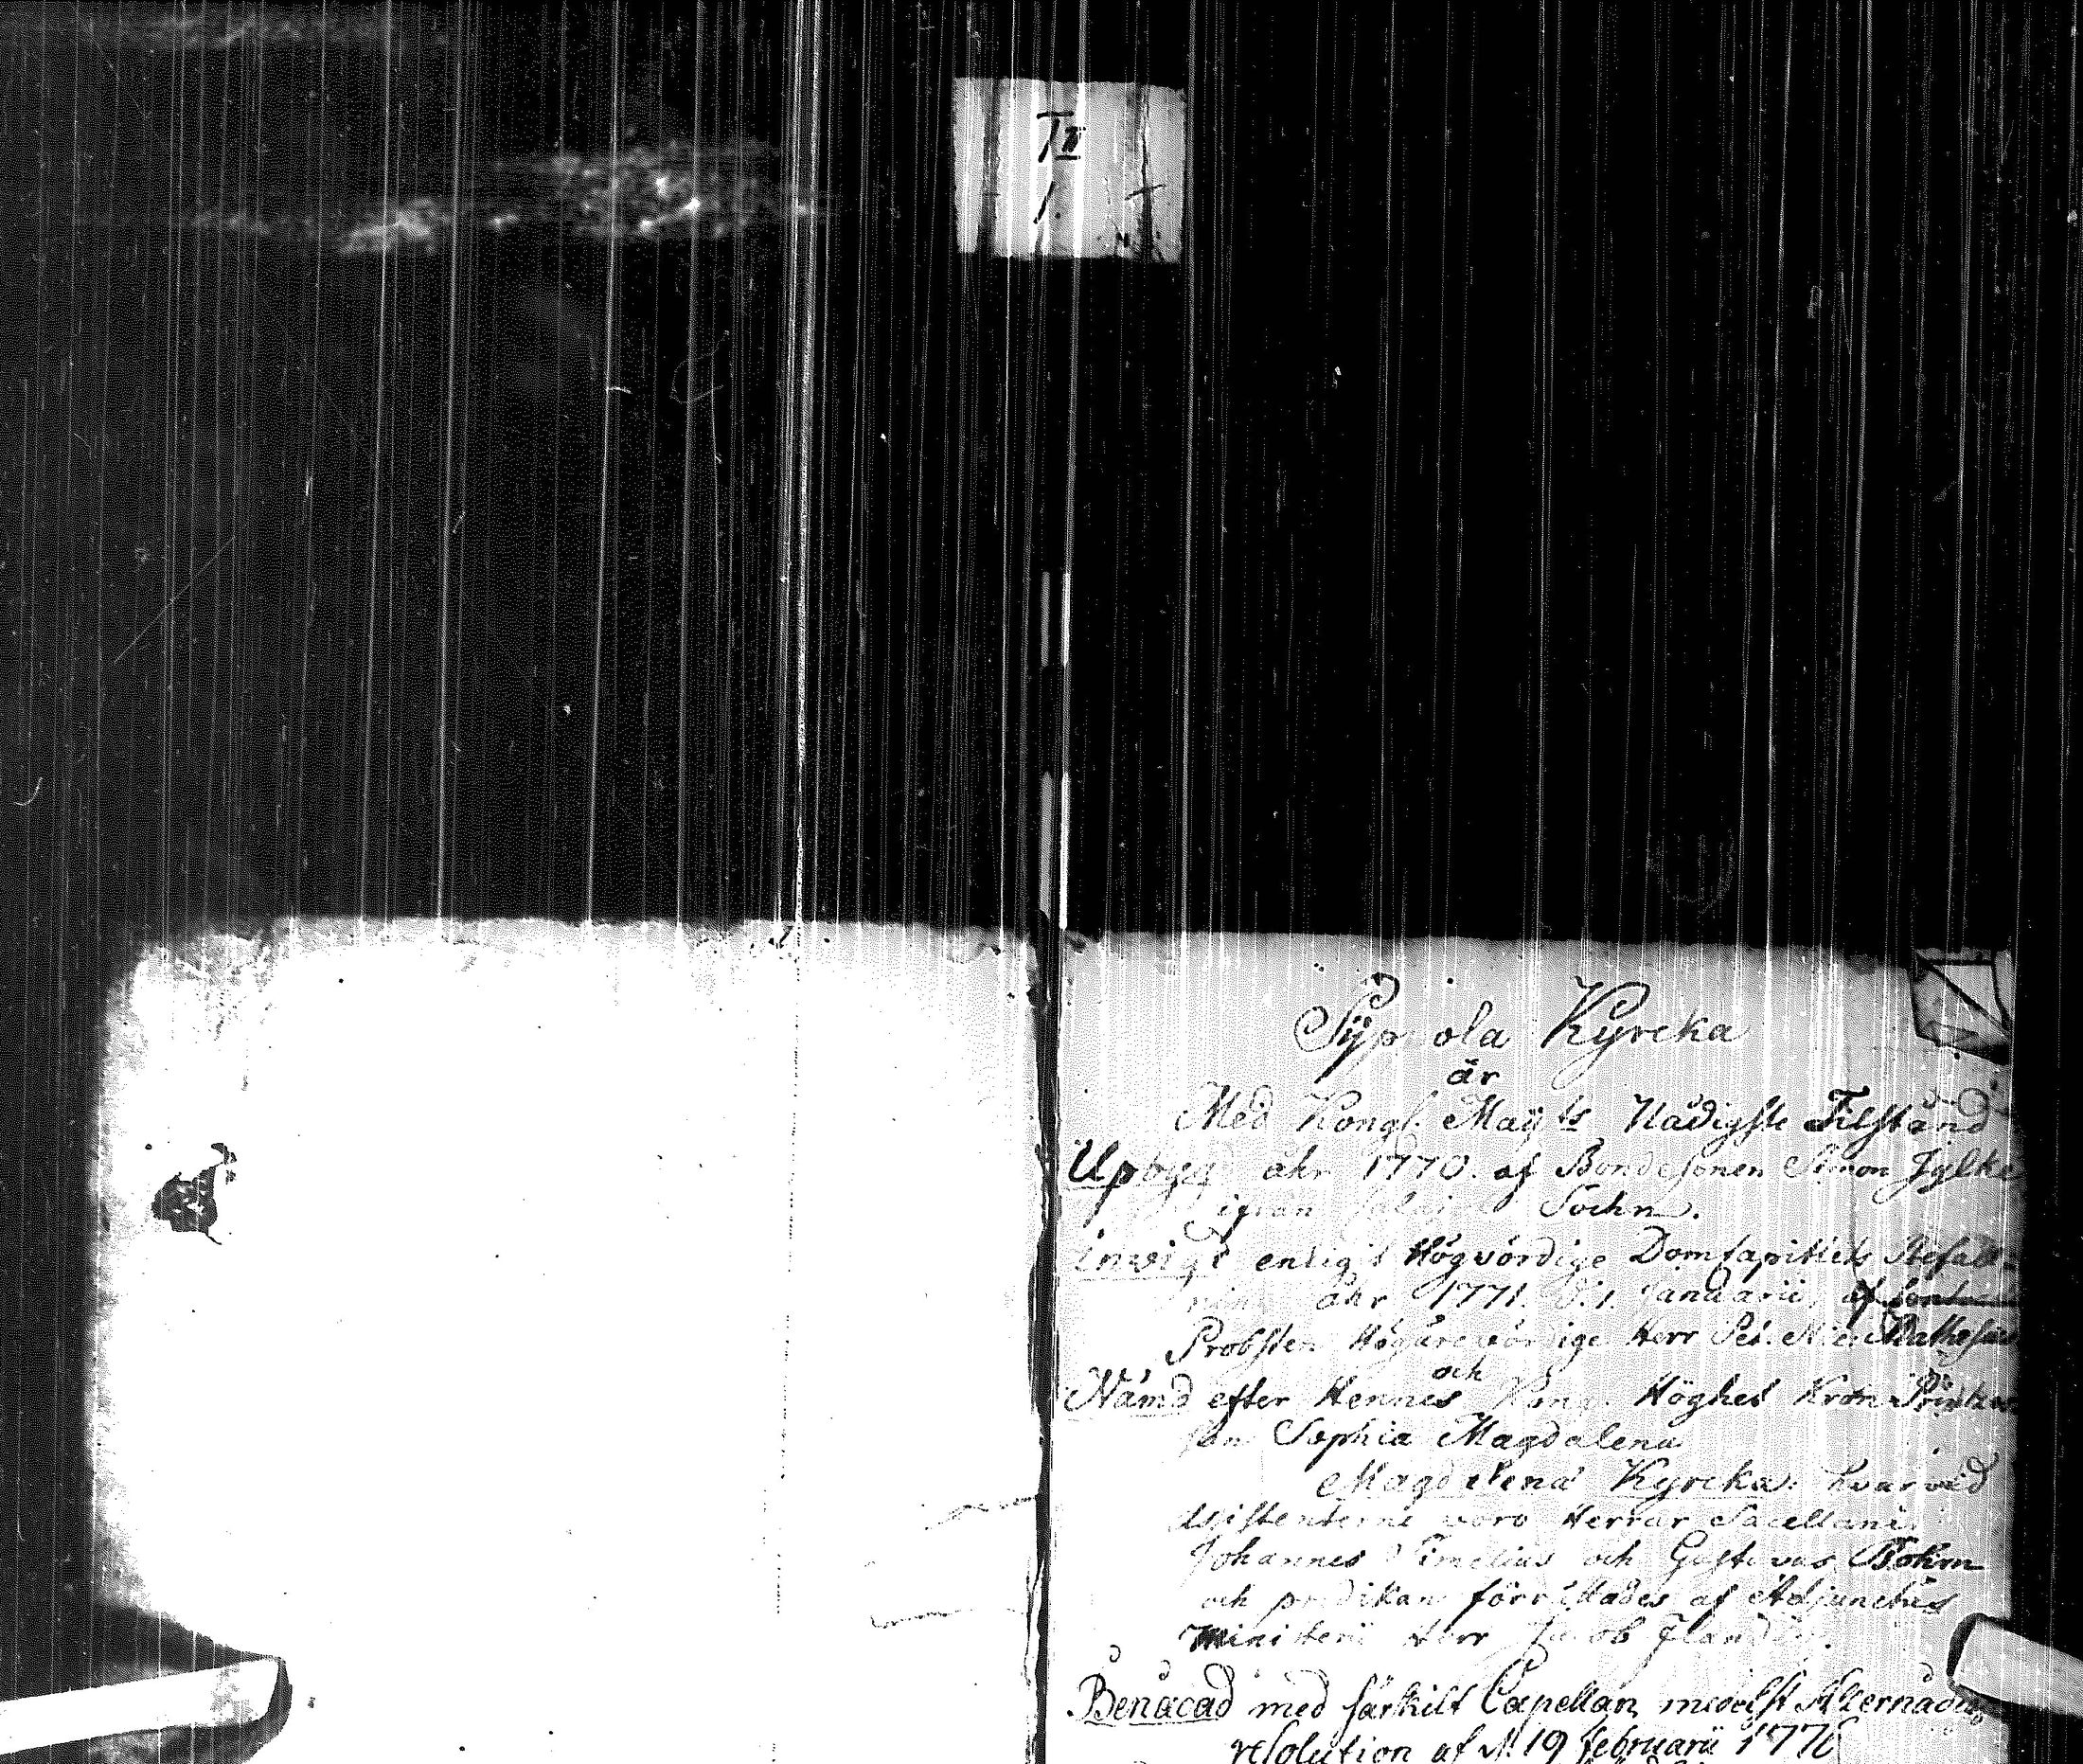 T II
1.
Sÿp ola Kyrcka
är
Med Kongl. Maÿts Nådigste Tilstånd
Upbygd åhr 1770. af Bondesonen Simon Jylke
ifrån Sochn.
invigt enligt Högvördige Domcapitlets Befall-
ning åhr 1771. d. 1. Januarii, af
Probsten Högärevördige Herr Pet. Nic. Mathesius
och
Nämd efter Hennes Kongl. Höghet Kron Printzes-
san Sophia Magdalena
Magdalena Kyrcka: hvarvid
Assistenterne voro Herrar Sacellani
Johannes och Gustavus Bohm
och predikan förrättades af Adjunctus
Ministerii Herr Jacob
Benåcad med särkilt Capellan medelst Allernådigste
resolution af d. 19 februarii 1776